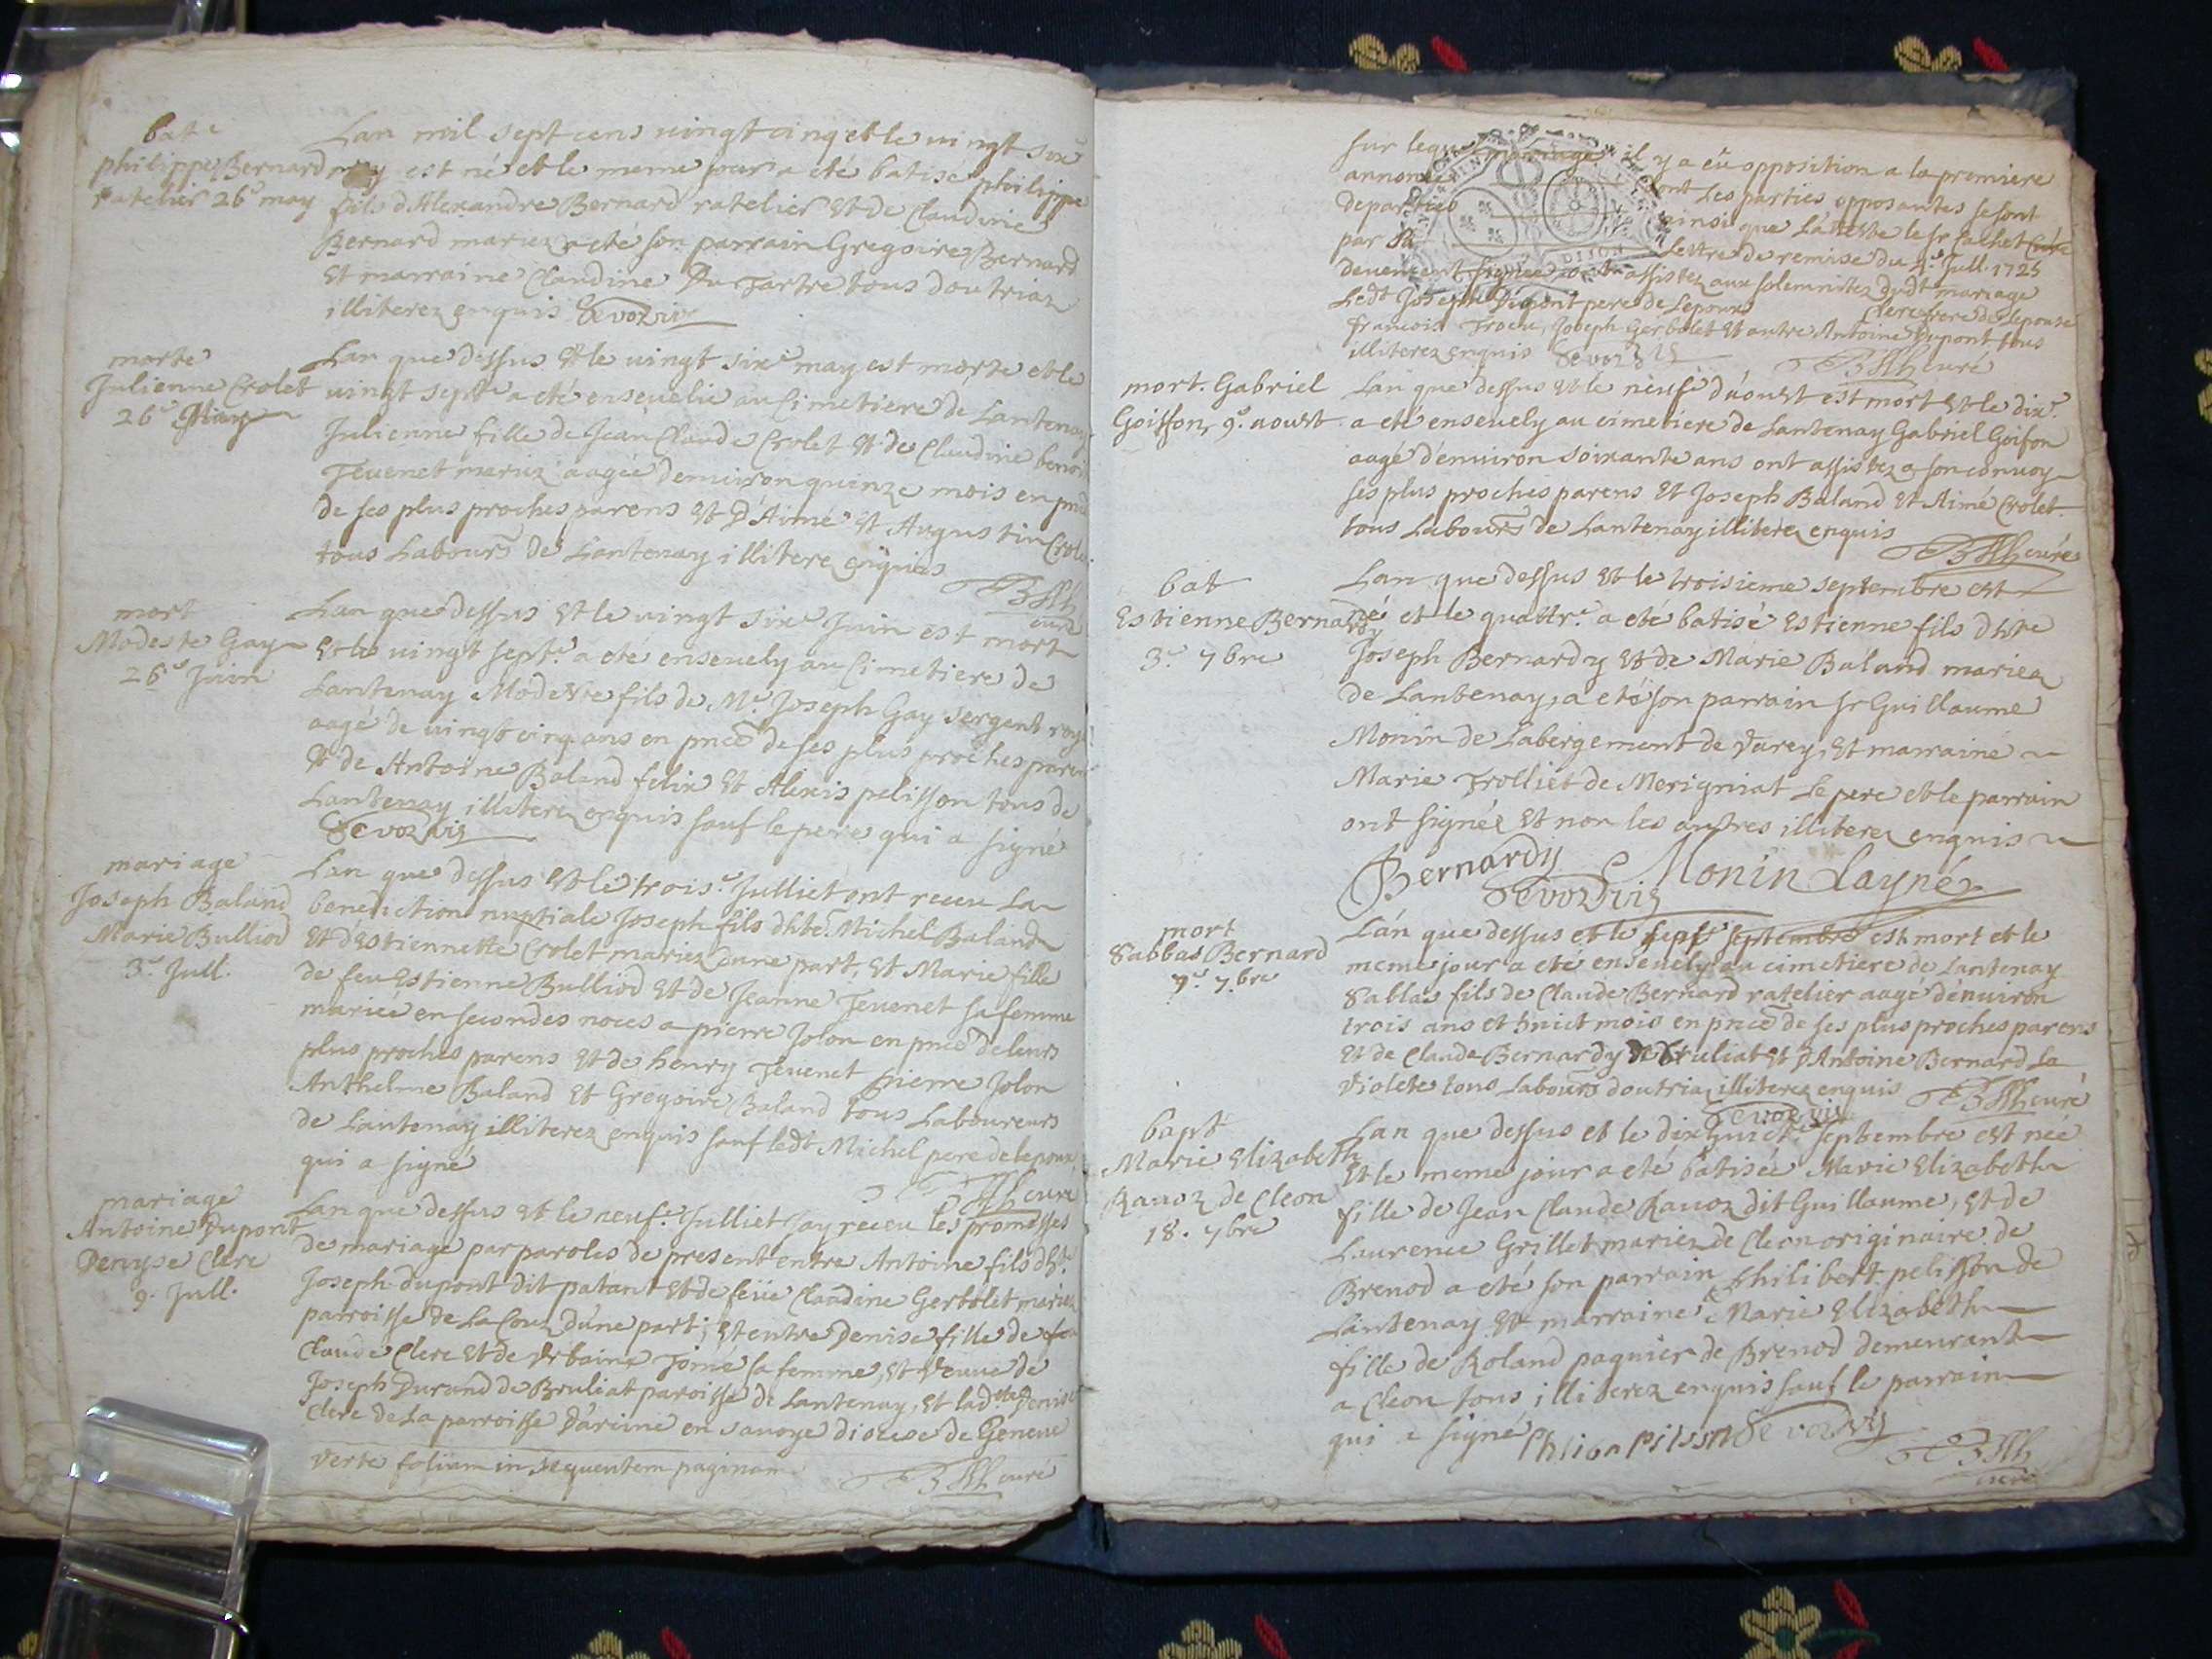 bat.e
philippe Bernard
ratelier 26e may
Lan mil sept cens vingt cinq et le vingt sixe
may est né et le meme jour a eté batisé philippe
fils d'Alexandre Bernard ratelier et de Claudine
Bernard mariez a eté son parrain Gregoire Bernard
et marraine Claudine Du Tartre tous doutriaz
illiterez enquis
morte
Julienne Crolet
26e May
Lan que dessus et le vingt sixe may est morte et le
vingt septe a eté ensevelie au Cimetiere de Lantenay
Julienne fille de Jean Claude Crolet et de Claudine
Tevenet mariez aagée denviron quinze mois en
de ses plus proches parens et d'Aimé et Augustin
tous Labours de Lantenay illitere enquis
mort
Modeste Gay
26e Juin
Lan que dessus et le vingt sixe Juin est mort
et le vingt septe a eté ensevely au Cimetiere de
Lantenay Modeste fils de Me Joseph Gay sergent
aagé de vingt cinq ans en pnce de ses plus proches
et de Antoine Baland felix et Alexis pelisson tous de
Lantenay illiterez enquis sauf le pere qui a signé
mariage
Joseph Baland
Marie Bulliod
3e Jull.
Lan que dessus et le troise Julliet ont receu la
benediction nuptiale Joseph fils dhte Michel Baland
et d'Estiennette Crolet mariez dune part, et Marie fille
de feu Estienne Bulliod et de Jeanne Tevenet sa femme
mariée en secondes noces a pierre Jolon en pnce de leurs
plus proches parens et de henry Tevenet pierre Jolon
Anthelme Baland et Gregoire Baland tous Laboureurs
de Lantenay illiterez enquis sauf ledt Michel pere de lepoux
qui a signé
curé
mariage
Antoine Dupont
Denyse Clerc
9. Jull.
Lan que dessus et le neufe Julliet Jay receu les promesses
de mariage par paroles de present entre Antoine fils dhte
Joseph dupont dit patant et de feüe Claudine Gerbolet mariez
parroisse de La Cour dune part; et entre Denise fille de feu
Claude Clerc et de Urbaine Tomé sa femme, et veuve de
Joseph Durand de Bruliat paroisse de Lantenay, et lad Denise
Clerc de la parroisse d'arcine en savoye diocese de Geneve
verte folium in sequentem paginam
curé
sur lequel mariage il y a eü opposition a la premiere
annonce dont les parties opposantes se sont
departies ainsi que l'atteste le sr Cachet
par lettre de remise du 4e Jull. 1725
assistez aux solemnitez dudt mariage
Ledt Joseph Dupont pere de Lepoux Clerc frere de Lepouse
francois Joseph Gerbolet et autre Antoine Dupont tous
illiterez enquis
curé
mort. Gabriel
Goiffon, 9e aoust
Lan que dessus et le neufe d'aoust est mort et le dixe
a eté ensevely au cimetiere de Lantenay Gabriel Goifon
aagé denviron soixante ans ont assistez a son convoy
ses plus proches parens et Joseph Baland et Aimé Crolet
tous Labours de Lantenay illiterez enquis
curé
bat
Estienne Bernardy
3e 7bre
Lan que dessus et le troisieme septembre est
né et le quattre a eté batisé Estienne fils dhte
Joseph Bernardy et de Marie Baland mariez
de Lantenay, a eté son parrain sr Guillaume
Monin de Labergement de Varey, et marraine
Marie Trolliet de Merigniat le pere et le parrain
ont signé et non les autres illiterez enquis
Bernardy Monin Layné
mort
Sabbas Bernard
7e 7bre
Lan que dessus et le septe septembre est mort et le
meme jour a eté ensevely au cimetiere de Lantenay
Sabbas fils de Claude Bernard ratelier aagé denviron
trois ans et huict mois en pnce de ses plus proches parens
et de Claude Bernardy de Bruliat et d'Antoine Bernard La
Violete tous Labours doutriaz illiterez enquis
curé
bapt
Marie Elizabeth
Ravoz de Cleon
18. 7bre
Lan que dessus et le dix huicte septembre est née
et le meme jour a eté batisée Marie Elizabeth
fille de Jean Claude Ravoz dit Guillaume, et de
Laurence Grillet mariez de Cleon originaire de
Brenod a eté son parrain Philibert pelisson de
Lantenay et marraine Marie Elizabeth
fille de Roland paquier de Brenod demeurant
a Cleon tous illiterez enquis sauf le parrain
qui a signé
curé